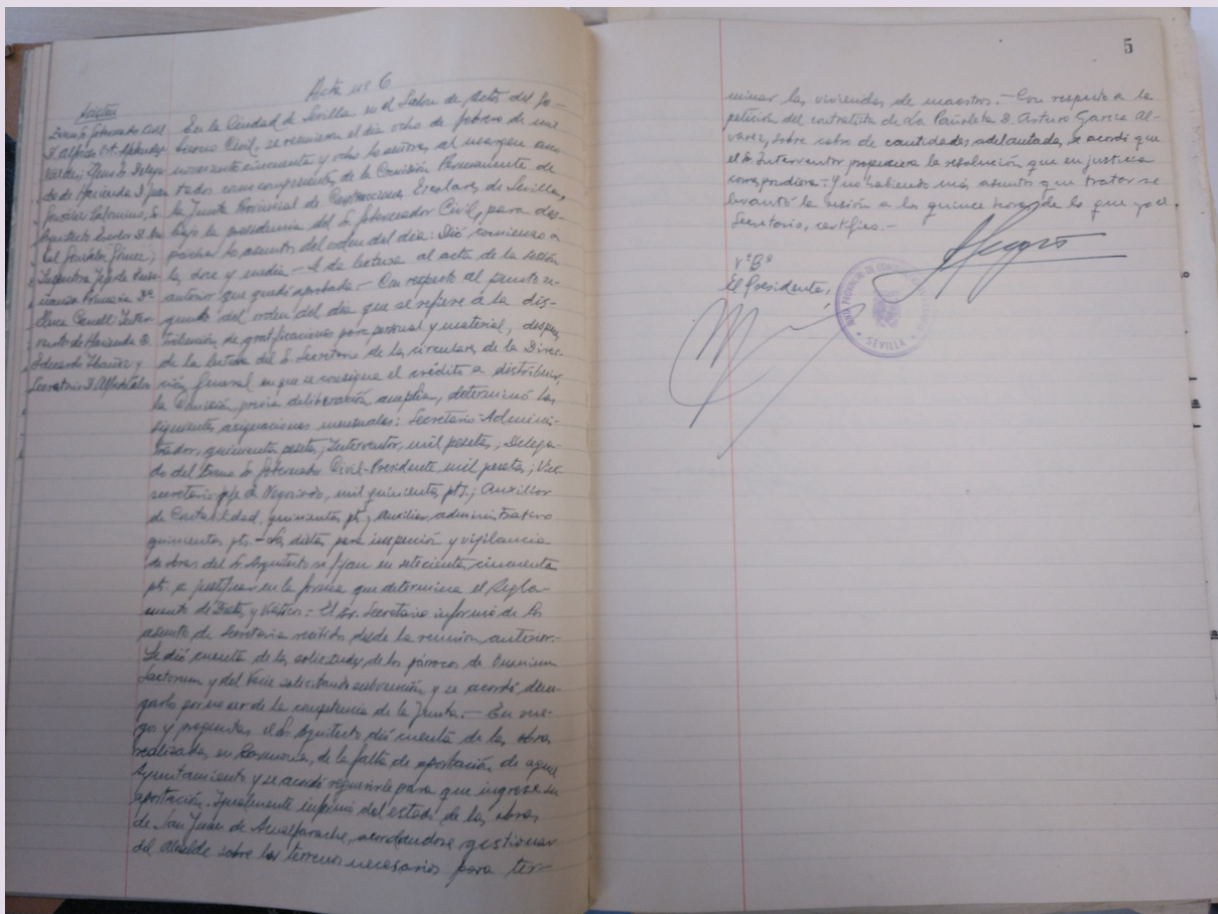 Acta nº 6
Asisten
Excmo. Sr. Gobernador Civil
D. Alfonso
Valdés, Ilmo Sr Delega-
do de Hacienda D. Juan
Sr.
Arquitecto Escolar D. Ra-
fael González Gómez;
Inspectora Jefe de Ense-
ñanza Primaria Dª
Inter-
ventor de Hacienda D.
Eduardo Ibáñez y
Secretario D.
En la Ciudad de Sevilla en el Salón de Actos del Go-
bierno Civil, se reunieron el día ocho de febrero de mil
novecientos cincuenta y ocho los señores al margen ano-
tados como componentes de la Comisión Permanente de
la Junta Provincial de Construcciones Escolares de Sevilla,
bajo la presidencia del Sr. Gobernador Civil, para des-
pachar los asuntos del orden del día: Dió comienzo a
las doce y media.- Se da lectura al acta de la sesión
anterior que quedó aprobada.- Con respecto al punto se-
gundo del orden del día que se refiere a la dis-
tribución de gratificaciones para personal y material, después
de la lectura del Sr. Secretario de las circulares de la Direc-
ción General en que se consigna el crédito a distribuir,
la Comisión, previa deliberación amplia, determinó las
siguientes asignaciones mensuales: Secretario-Adminis-
trador, quinientas pesetas; Interventor, mil pesetas; Delega-
do del Excmo Sr Gobernador Civil-Presidente, mil pesetas; Vice
secretario jefe de Negociado, mil quinientas pts.; Auxiliar
de Contabilidad, quinientas pts; Auxiliar administrativo
quinientas pts.- Las dietas para inspección y vigilancia
de obras del Sr. Arquitecto se fijan en setecientas cincuenta
pts. a justificar en la forma que determina el Regla-
mento de Dietas y Viáticos.- El Sr. Secretario informó de los
asuntos de Secretaría recibidos desde la reunión anterior.-
Se dió cuenta de las solicitudes de los párrocos de Omnium
Sactorum y del solicitando subvención y se acordó dene-
garlo por no ser de la competencia de la Junta.- En rue-
gos y preguntas el Sr Arquitecto dió cuenta de las obras
realizadas en de la falta de aportación de aquel
Ayuntamiento y se acordó requerirle para que ingrese su
aportación. Igualmente informó del estado de las obras
de San Juan de Aznalfarache, acordándose gestionar
del Alcalde sobre los terrenos necesarios para ter-
5
minar las viviendas de maestros.- Con respecto a la
petición del contratista de La Pañoleta D. Arturo García Al-
varez, sobre cobro de cantidades adelantadas, se acordó que
el Sr. Interventor propusiera la resolución que en justicia
correspondiera.- Y no habiendo más asuntos que tratar se
levantó la sesión a las quince horas de lo que yo el
Secretario, certifico.-
VºBº
El Presidente,
SEVILLA